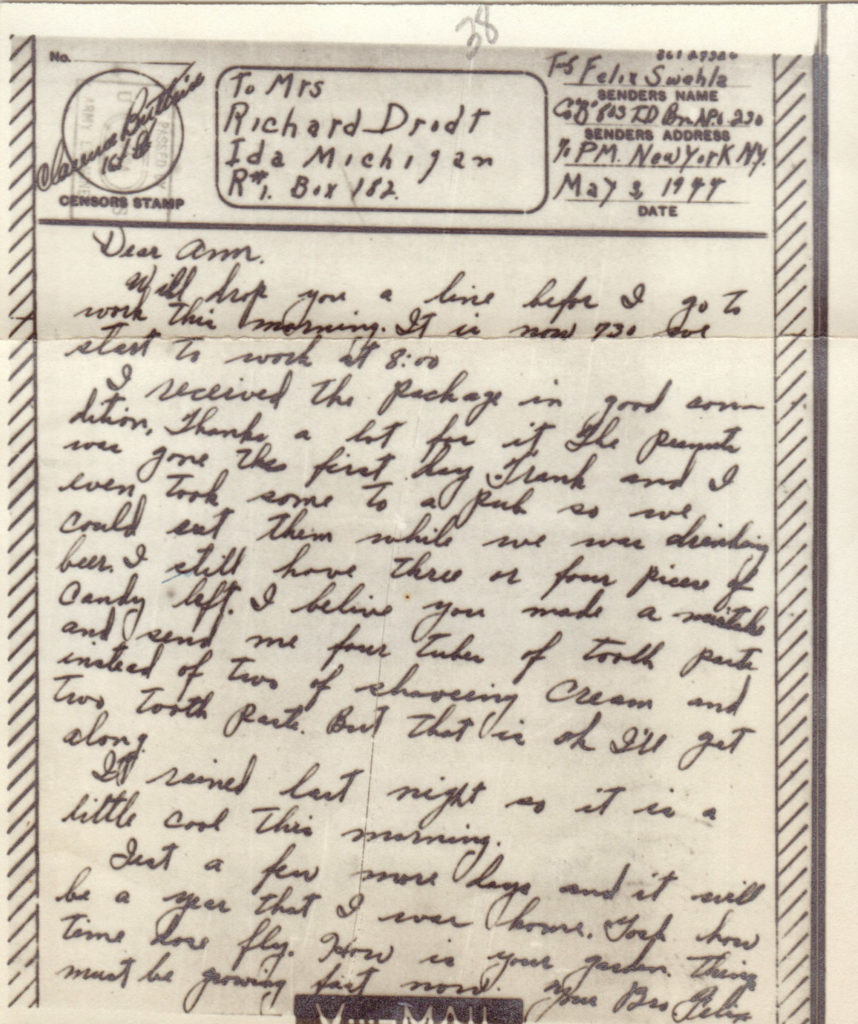 38
No.
To Mrs
Richard Drodt
Ida Michigan
R#1. Box 182.
36127326
T-5 Felix Swehla
SENDERS NAME
Co "B" 803 TD Bn APO 230
SENDERS ADDRESS
% P.M. New York N.Y.
May 3 1944
DATE
Clarence
1st Lt
CENSORS STAMP
Dear Ann.
Will drop you a line befor I go to
work this morning. It is now 730 we
start to work at 8:00
I received the package in good con-
dition. Thanks a lot for it The peanuts
was gone the first day. Frank and I
even took some to a pub so we
could eat them while we was drinking
beer. I still have three or four pieces of
candy left. I belive you made a mistake
and send me four tubes of tooth paste
instead of two of shaveing cream and
two tooth paste. But that is ok I'll get
along.
It rained last night so it is a
little cool this morning.
Just a few more days and it will
be a year that I was home. Gosh how
time dose fly. How is your garden. Things
must be growing fast now. Your Bro Felix
V...-MAIL